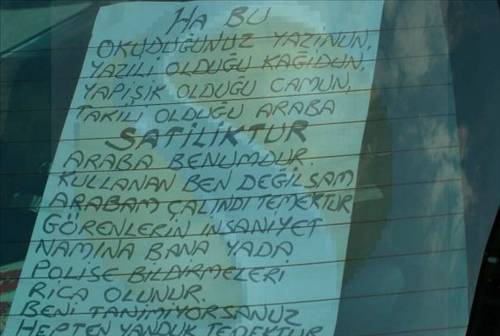 HA BU
OKUDUĞUNUZ YAZİNUN,
YAZILI OLDUĞU KAĞIDUN,
YAPIŞIK OLDUĞU CAMUN,
TAKILI OLDUĞU ARABA
SATILIKTUR
ARABA BENUMDUR.
KULLANAN BEN DEĞİLSAM
ARABAM ÇALINDI TEMEKTUR
GÖRENLERİN İNSANİYET
NAMINA BANA YADA
POLİSE BİLDİRMELERİ
RİCA OLUNUR.
BENİ TANIMIYORSANUZ
HEPTEN YANDUK TEMEKTUR